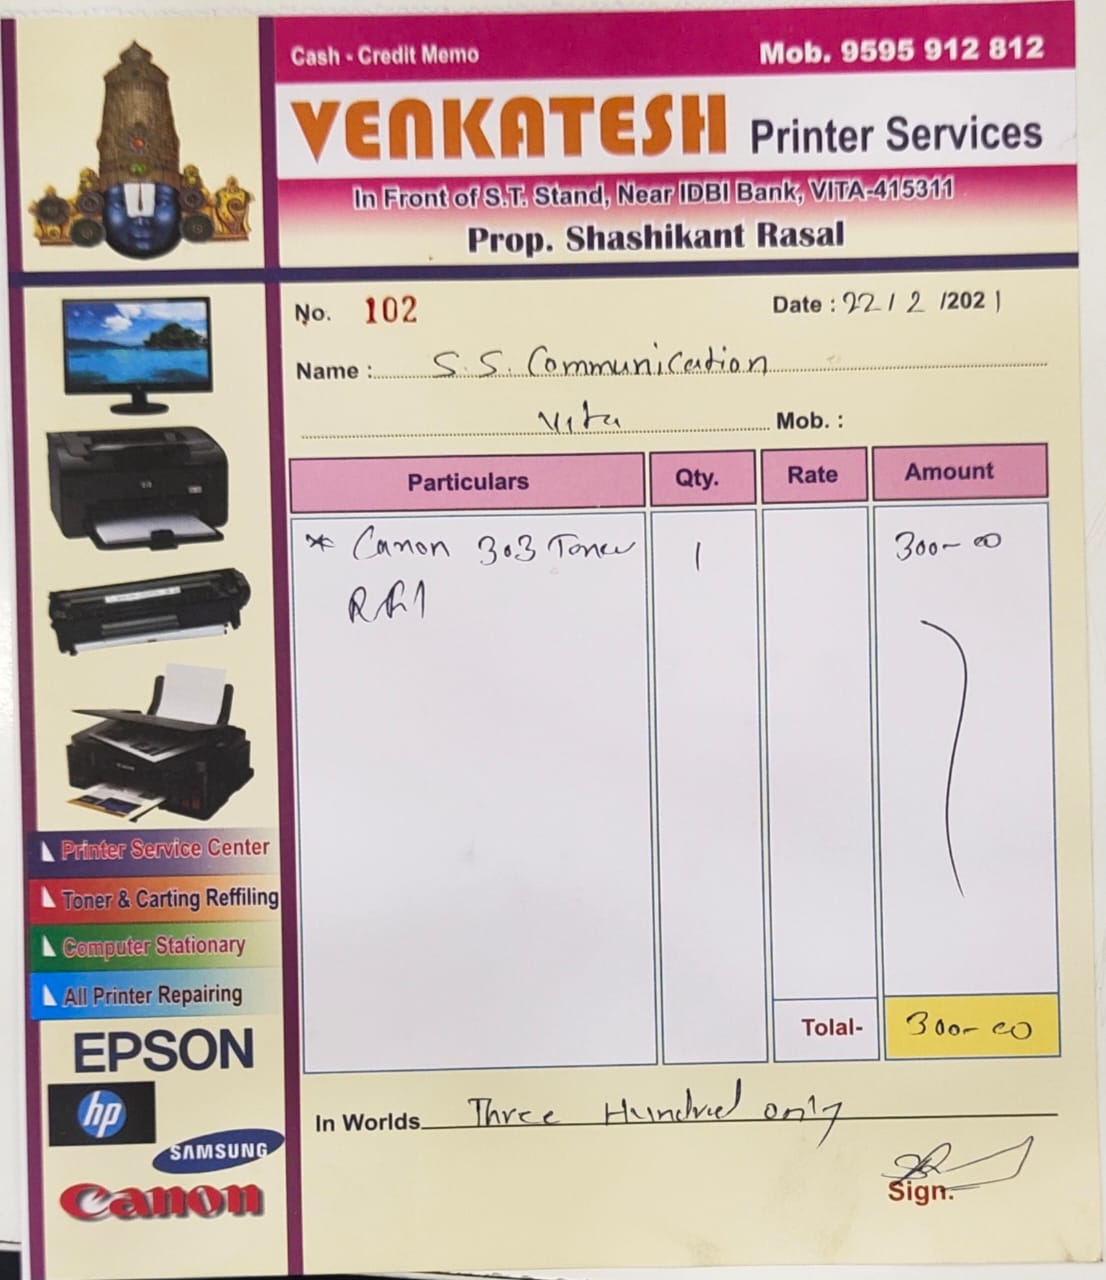 Cash - Credit Memo
Mob. 9595 912 812
VENKATESH Printer Services
In Front of S.T. Stand, Near IDBI Bank, VITA-415311
Prop. Shashikant Rasal
No. 102
Date : 22 / 2 /2021
Name : S. S. Communication
Vita Mob. :
Particulars Qty. Rate Amount
* Canon 303 Toner 1 300-00
Tolal- 300-00
In Worlds Three Hundred only
Sign.
Printer Service Center
Toner & Carting Reffiling
Computer Stationary
All Printer Repairing
EPSON
hp
SAMSUNG
Canon